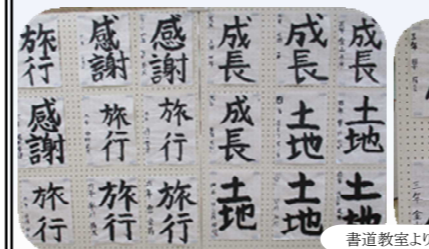 旅行 感謝 感謝 成長 成長 成長
感謝 旅行 旅行 成長 土地 土地
旅行 旅行 旅行 土地 土地 土地
書道教室より